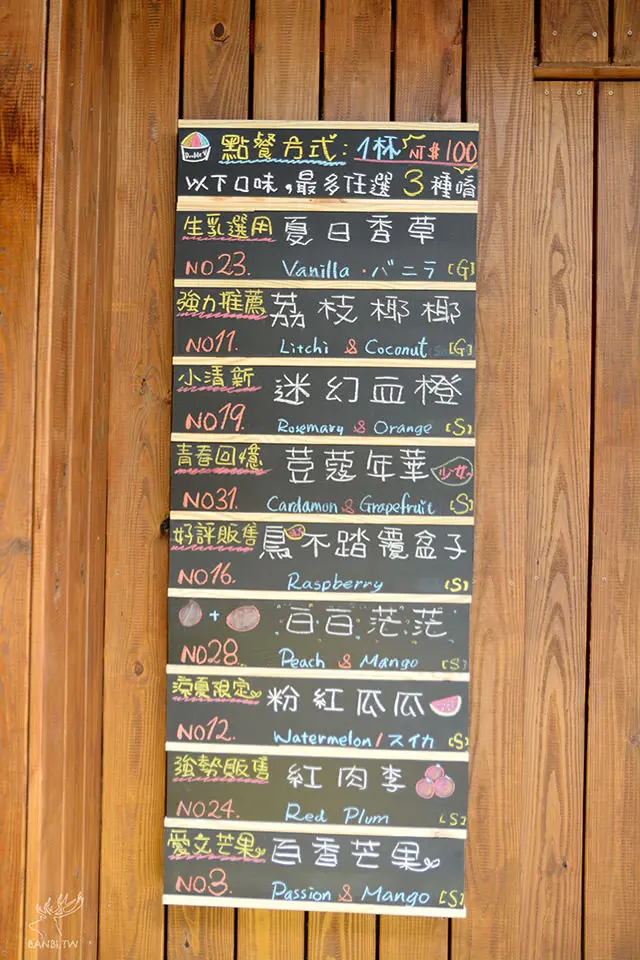 Double V 點餐方式:1杯 NT$100
以下口味,最多任選3種唷
生乳選用 夏日香草
NO23. Vanilla・バニラ [G]
強力推薦 荔枝椰椰
NO11. Litchi & Coconut [G]
小清新 迷幻血橙
NO19. Rosemary & Orange [S]
青春回憶 荳蔻年華 少女
NO31. Cardamon & Grapefruit [S]
好評販售 鳥不踏覆盆子
NO16. Raspberry [S]
+ 百百茫茫
NO28. Peach & Mango [S]
涼夏限定 粉紅瓜瓜
NO12. Watermelon/スイカ [S]
強勢販售 紅肉李
NO24. Red Plum [S]
愛文芒果 百香芒果
NO3. Passion & Mango [S]
BANBI.TW